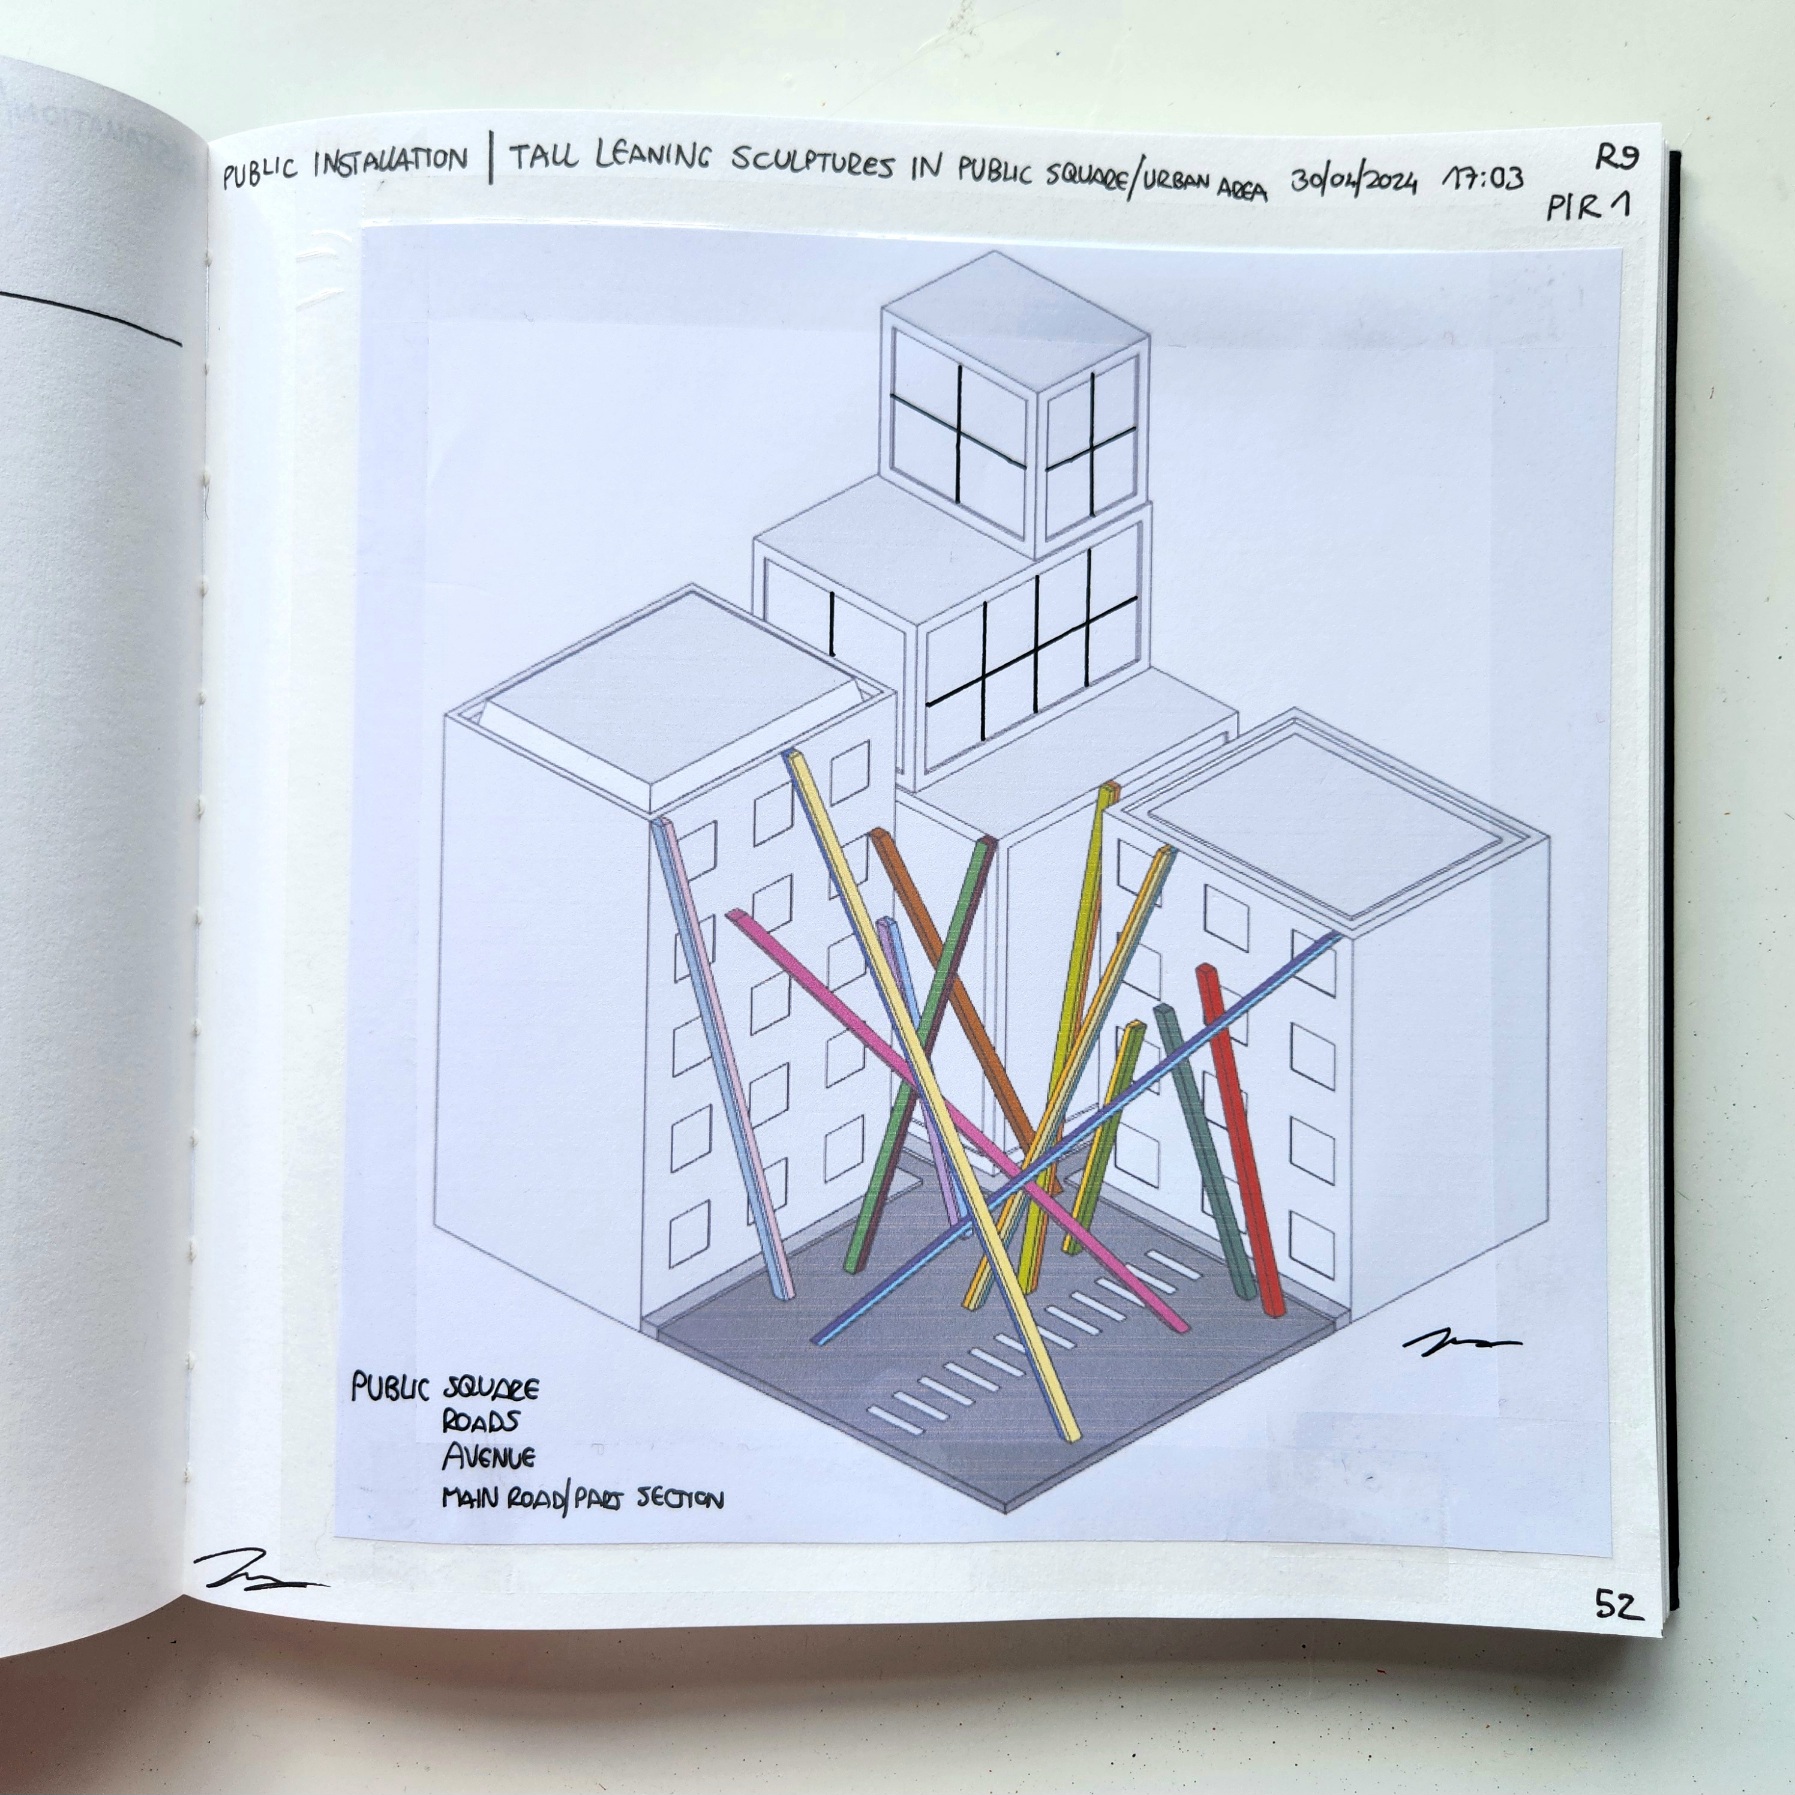 PUBLIC INSTALLATION | TALL LEANING SCULPTURES IN PUBLIC SQUARE/URBAN AREA 30/04/2024 17:03
R9
PIR 1
PUBLIC SQUARE
ROADS
AVENUE
MAIN ROAD/PART SECTION
52